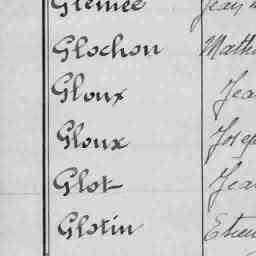 Glemée Jean
Glochon Math
Gloux Jea
Gloux Josep
Glot Jea
Glotin Etien